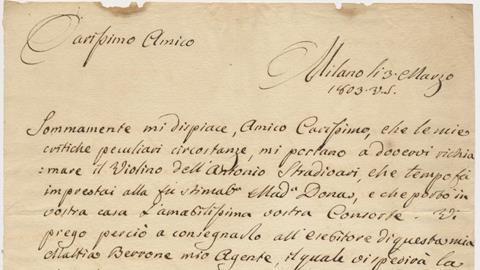 Carissimo Amico
Milano li 3. Marzo
1803. V.S.
Sommamente mi dispiace, Amico Carissimo, che le mie
critiche peculiari circostanze, mi portano a dovervi richia
:mare il Violino dell'Antonio Stradivari, che tempo fà
imprestai alla fù stimab.ᵉ Mad.ᵃ Dona, e che portò in
vostra casa l'amabilissima vostra Consorte. Vi
prego perciò a consegnarlo all'esebitore di questa mia
Mattia Berrone mio Agente, il quale vi spedirà la